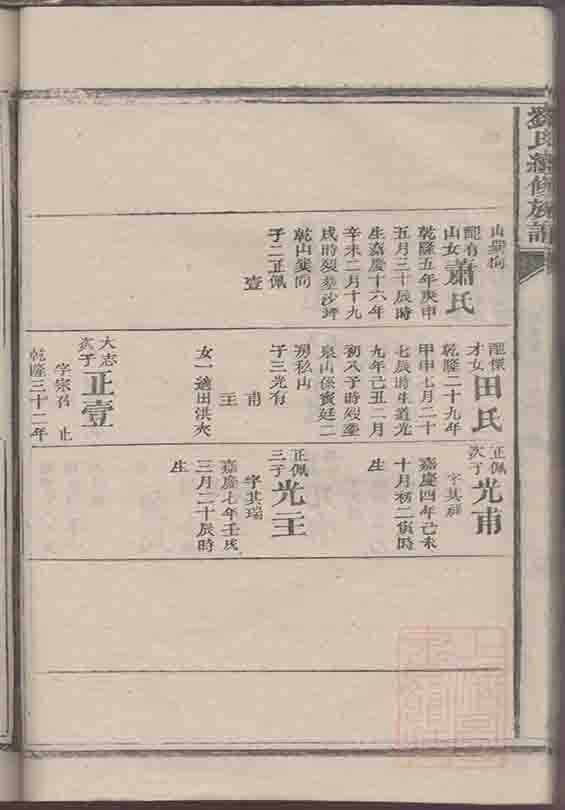 劉氏續修族譜
山巽向
配有
山女
蕭氏
乾隆五年庚申
五月三十辰時
生嘉慶十六年
辛未二月十九
戌時歿塟沙坪
乾山巽向
子二正佩
壹
配懷
才女
田氏
乾隆二十九年
甲申七月二十
七辰時生道光
九年己丑二月
初八子時歿塟
泉山保寳廷二
房私山
子三光有
甫
玉
女一適田洪夾
大志
次子
正壹
字宗召 止
乾隆三十二年
正佩
次子
光甫
字其祥
嘉慶四年己未
十月初二寅時
生
正佩
三子
光玉
字其瑞
嘉慶七年壬戌
三月二十辰時
生